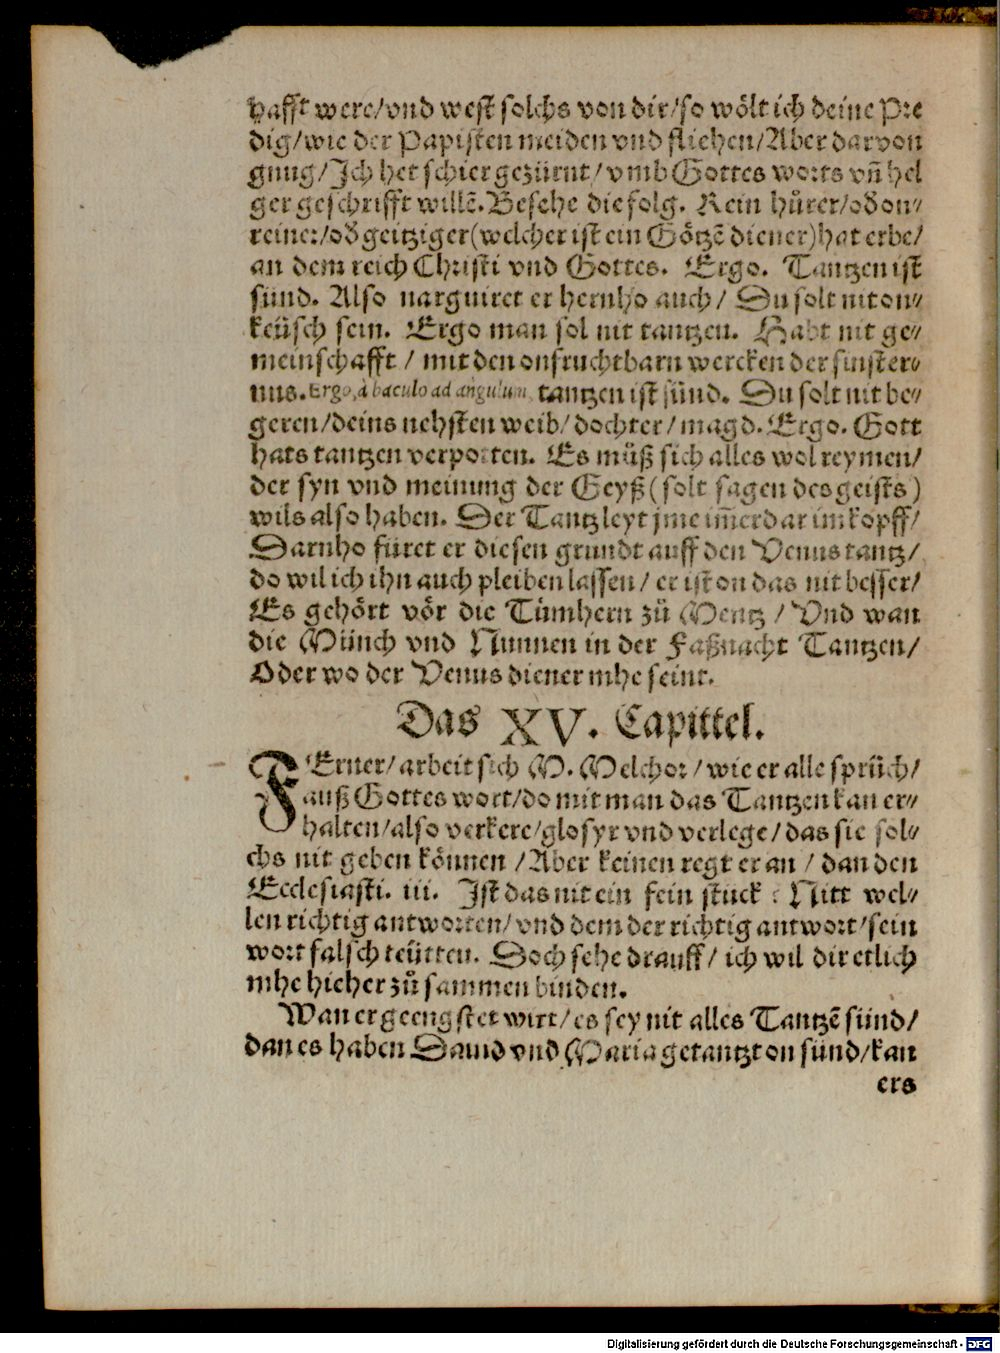 hafft were/vnd west solchs von dir/so wölt ich deine Pre
dig/wie der Papisten meiden vnd fliehen/Aber darvon
gnug/Ich het schier gezürnt/vmb Gottes worts vñ hel
ger geschrifft willẽ. Besehe die folg. Kein hůrer/oď on⸗
reiner/oď geitziger(welcher ist ein Götzẽ diener)hat erbe/
an dem reich Christi vnd Gottes. Ergo. Tantzen ist
sünd. Also narguiret er hernho auch/ Du solt nit on⸗
keüsch sein. Ergo man sol nit tantzen. Habt nit ge⸗
meinschafft / mit den onfruchtbarn wercken der finster⸗
nus. Ergo, à baculo ad angulum, tantzen ist sünd. Du solt nit be⸗
geren/deins nehsten weib/dochter/magd. Ergo. Gott
hats tantzen verpotten. Es můß sich alles wol reymen/
der syn vnd meinung der Geyß (solt sagen des geists)
wils also haben. Der Tantz leyt jme im̃erdar im kopff/
Darnho füret er diesen grundt auff den Venus tantz/
do wil ich ihn auch pleiben lassen/ er ist on das nit besser/
Es gehört vör die Tůmhern zů Mentz / Vnd wan
die Münch vnd Nunnen in der Faßnacht Tantzen/
Oder wo der Venus diener mhe seint.
Das XV. Capittel.
FErner/arbeit sich M. Melchor/wie er alle sprüch/
auß Gottes wort/do mit man das Tantzen kan er⸗
halten/also verkere/glosyr vnd verlege/das sie sol⸗
chs nit geben können /Aber keinen regt er an / dan den
Ecclesiasti. iii. Ist das nit ein fein stuck : Nitt wel⸗
len richtig antworten/vnd dem der richtig antwort/sein
wort falsch teütten. Doch sehe drauff/ ich wil dir etlich
mhe hieher zů sammen binden.
Wan er geengstet wirt/es sey nit alles Tantzẽ sünd/
dan es haben Dauid vnd Maria getantzt on sünd/kan
ers
Digitalisierung gefördert durch die Deutsche Forschungsgemeinschaft - DFG